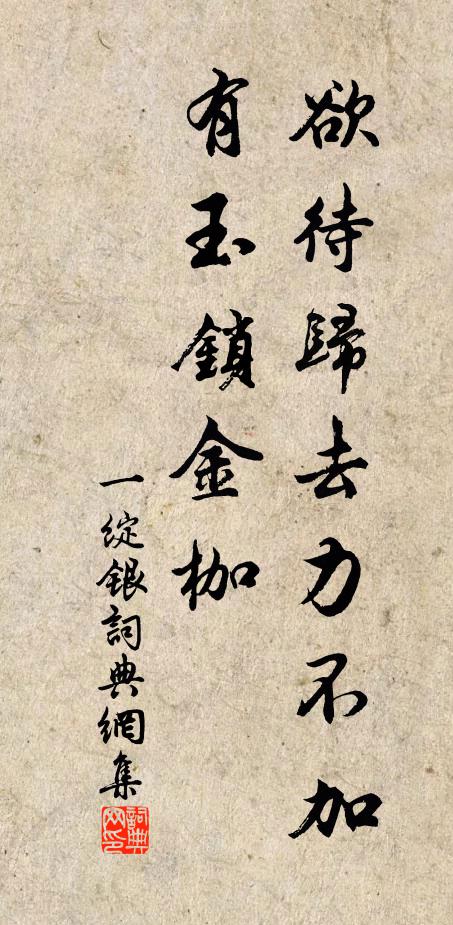 欲待歸去力不加
有玉鎖金枷
一綻銀詞典網集
詞典網印